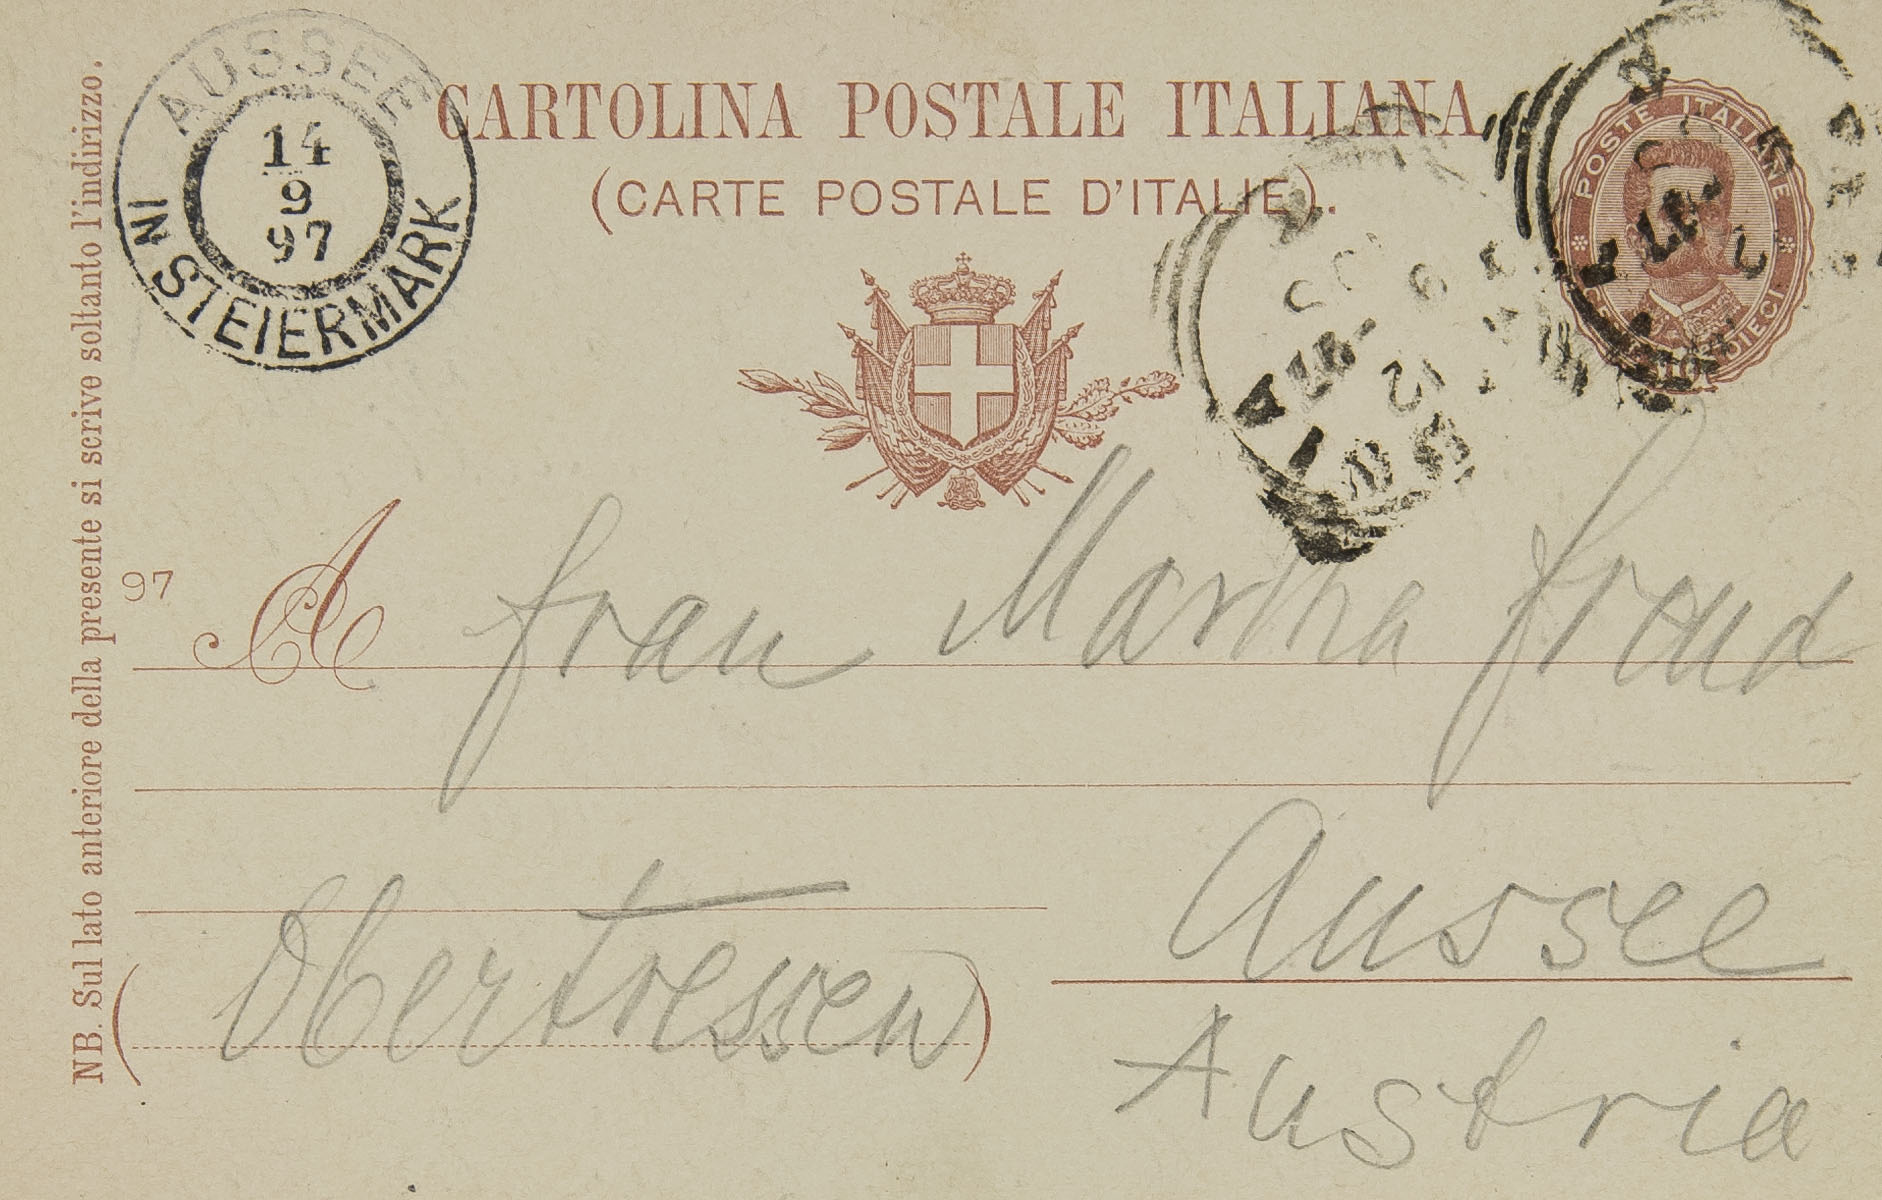 AUSSEE
14
9
97
IN STEIERMARK
CARTOLINA POSTALE ITALIANA
(CARTE POSTALE D'ITALIE).
POSTE ITALIANE
NB. Sul lato anteriore della presente si scrive soltanto l'indirizzo.
97
A Frau Martha Freud
Aussee
(Obertressen)
Austria